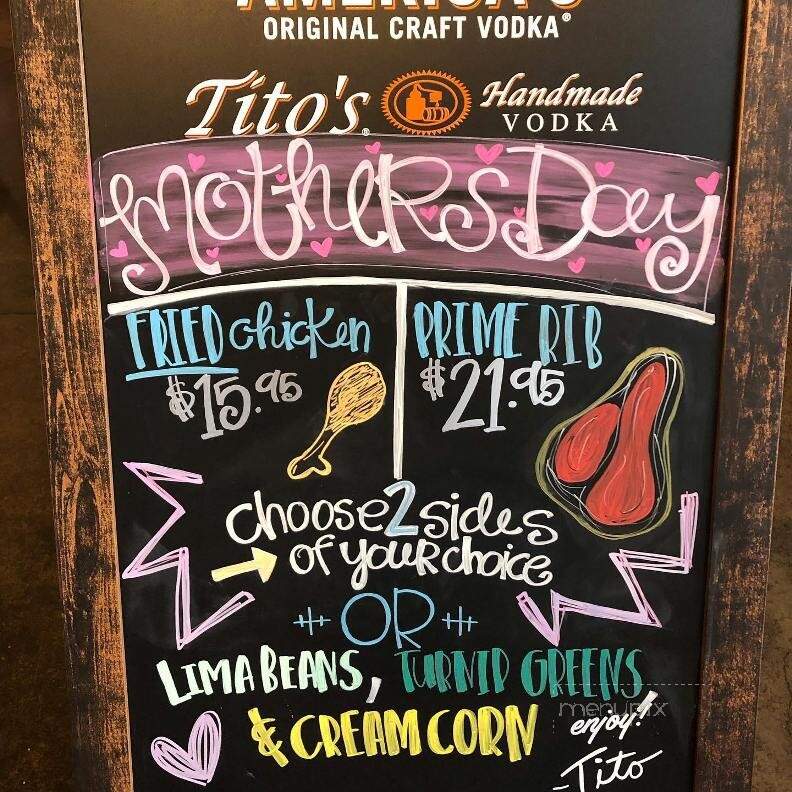 AMERICA'S
ORIGINAL CRAFT VODKA®
Tito's® Handmade
VODKA
Mothers Day
FRIED chicken
$15.95
PRIME RIB
$21.95
choose 2 sides
of your choice
OR
LIMA BEANS, TURNIP GREENS
& CREAM CORN
enjoy!
-Tito
menupix